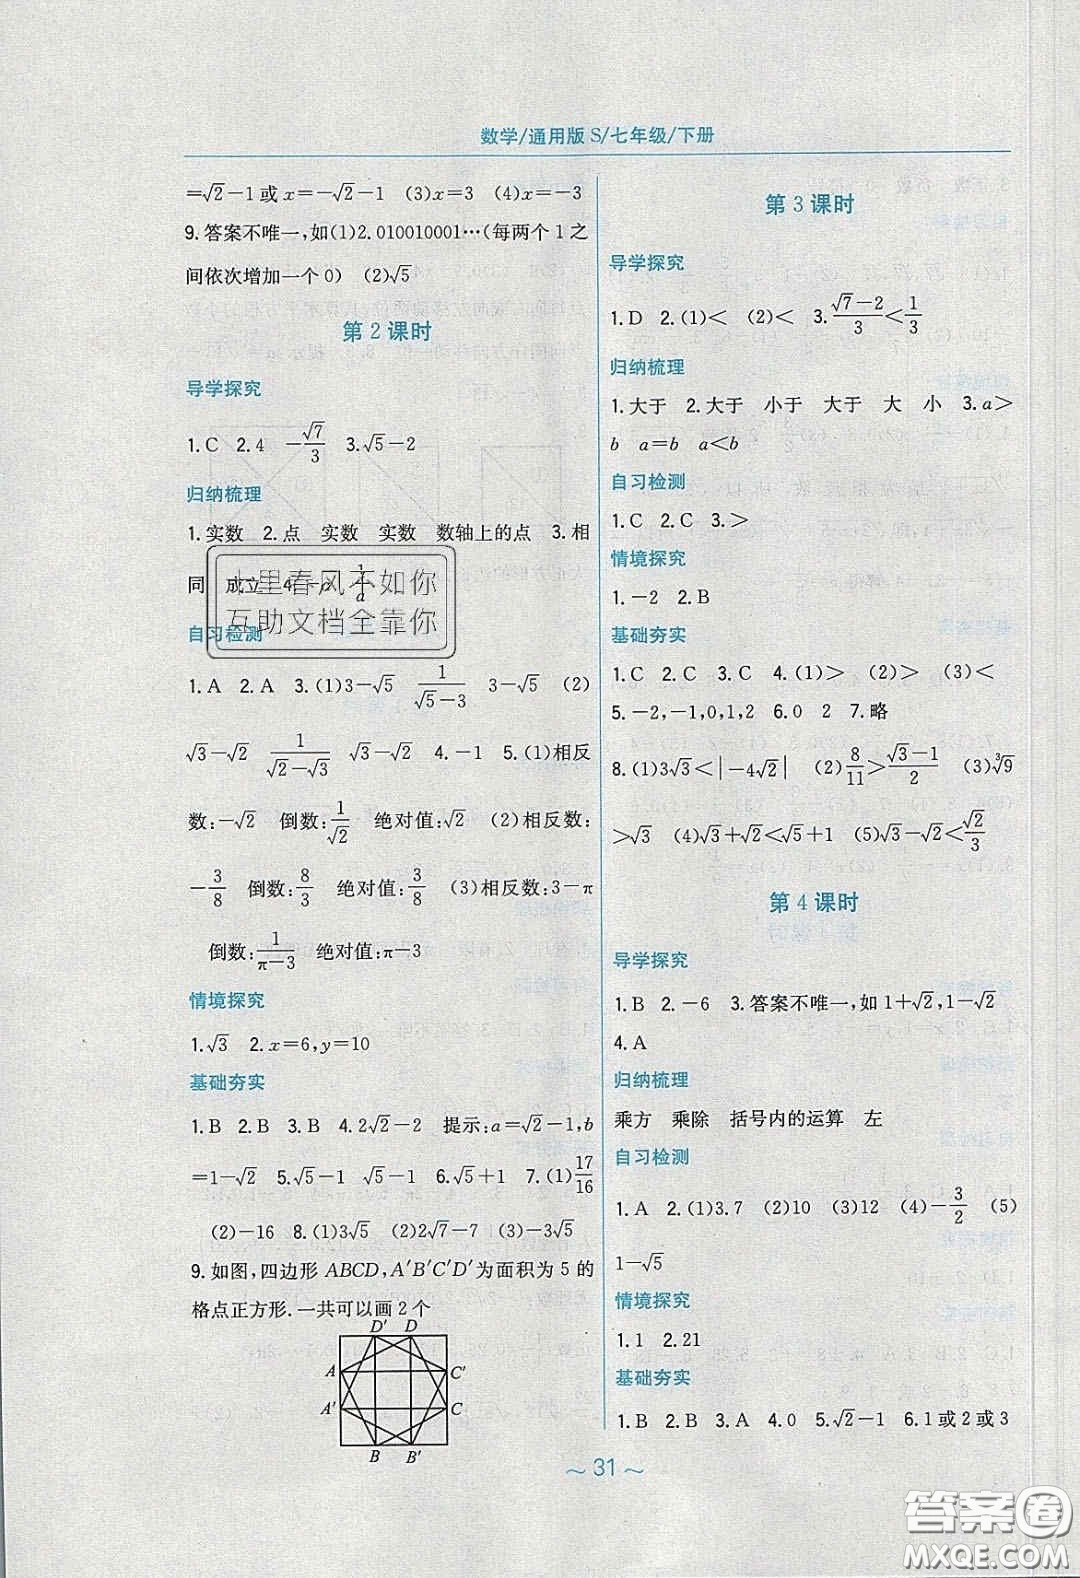 数学/通用版 S/七年级/下册
=√2-1或x=-√2-1 (3)x=3 (4)x=-3
9.答案不唯一,如(1)2.010010001…(每两个1之
间依次增加一个0) (2)√5
第2课时
导学探究
1.C 2.4 -√7/3 3.√5-2
归纳梳理
1.实数 2.点 实数 实数 数轴上的点 3.相
同 成立 4.-a 1/a
自习检测
1.A 2.A 3.(1)3-√5 1/(√5-3) 3-√5 (2)
√3-√2 1/(√2-√3) √3-√2 4.-1 5.(1)相反
数:-√2 倒数:1/√2 绝对值:√2 (2)相反数:
-3/8 倒数:8/3 绝对值:3/8 (3)相反数:3-π
倒数:1/(π-3) 绝对值:π-3
情境探究
1.√3 2.x=6,y=10
基础夯实
1.B 2.B 3.B 4.2√2-2 提示:a=√2-1,b
=1-√2 5.√5-1 √5-1 6.√5+1 7.(1)17/16
(2)-16 8.(1)3√5 (2)2√7-7 (3)-3√5
9.如图,四边形ABCD,A′B′C′D′为面积为5的
格点正方形.一共可以画2个
D′ D
A C′
A′ C
B B′
第3课时
导学探究
1.D 2.(1)< (2)< 3.(√7-2)/3<1/3
归纳梳理
1.大于 2.大于 小于 大于 大 小 3.a>
b a=b a<b
自习检测
1.C 2.C 3.>
情境探究
1.-2 2.B
基础夯实
1.C 2.C 3.C 4.(1)> (2)> (3)<
5.-2,-1,0,1,2 6.0 2 7.略
8.(1)3√3<|-4√2| (2)8/11>(√3-1)/2 (3)∛9
>√3 (4)√3+√2<√5+1 (5)√3-√2<√2/3
第4课时
导学探究
1.B 2.-6 3.答案不唯一,如1+√2,1-√2
4.A
归纳梳理
乘方 乘除 括号内的运算 左
自习检测
1.A 2.(1)3.7 (2)10 (3)12 (4)-3/2 (5)
1-√5
情境探究
1.1 2.21
基础夯实
1.B 2.B 3.A 4.0 5.√2-1 6.1或2或3
～31～
十里春风不如你
互助文档全靠你
答案圈
MXQE.COM